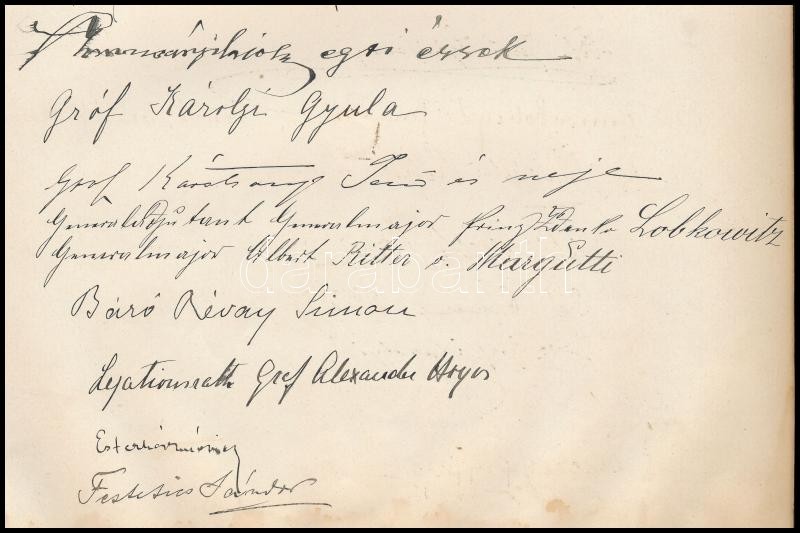 egri érsek
Gróf Károlyi Gyula
Gróf Karátsonyi Jenő és neje
Generaladjutant Generalmajor Prinz Zdenko Lobkowitz
Generalmajor Albert Ritter v. Margutti
darabanth
Báró Révay Simon
Legationsrath Graf Alexander Hoyos
Festetics Sándor